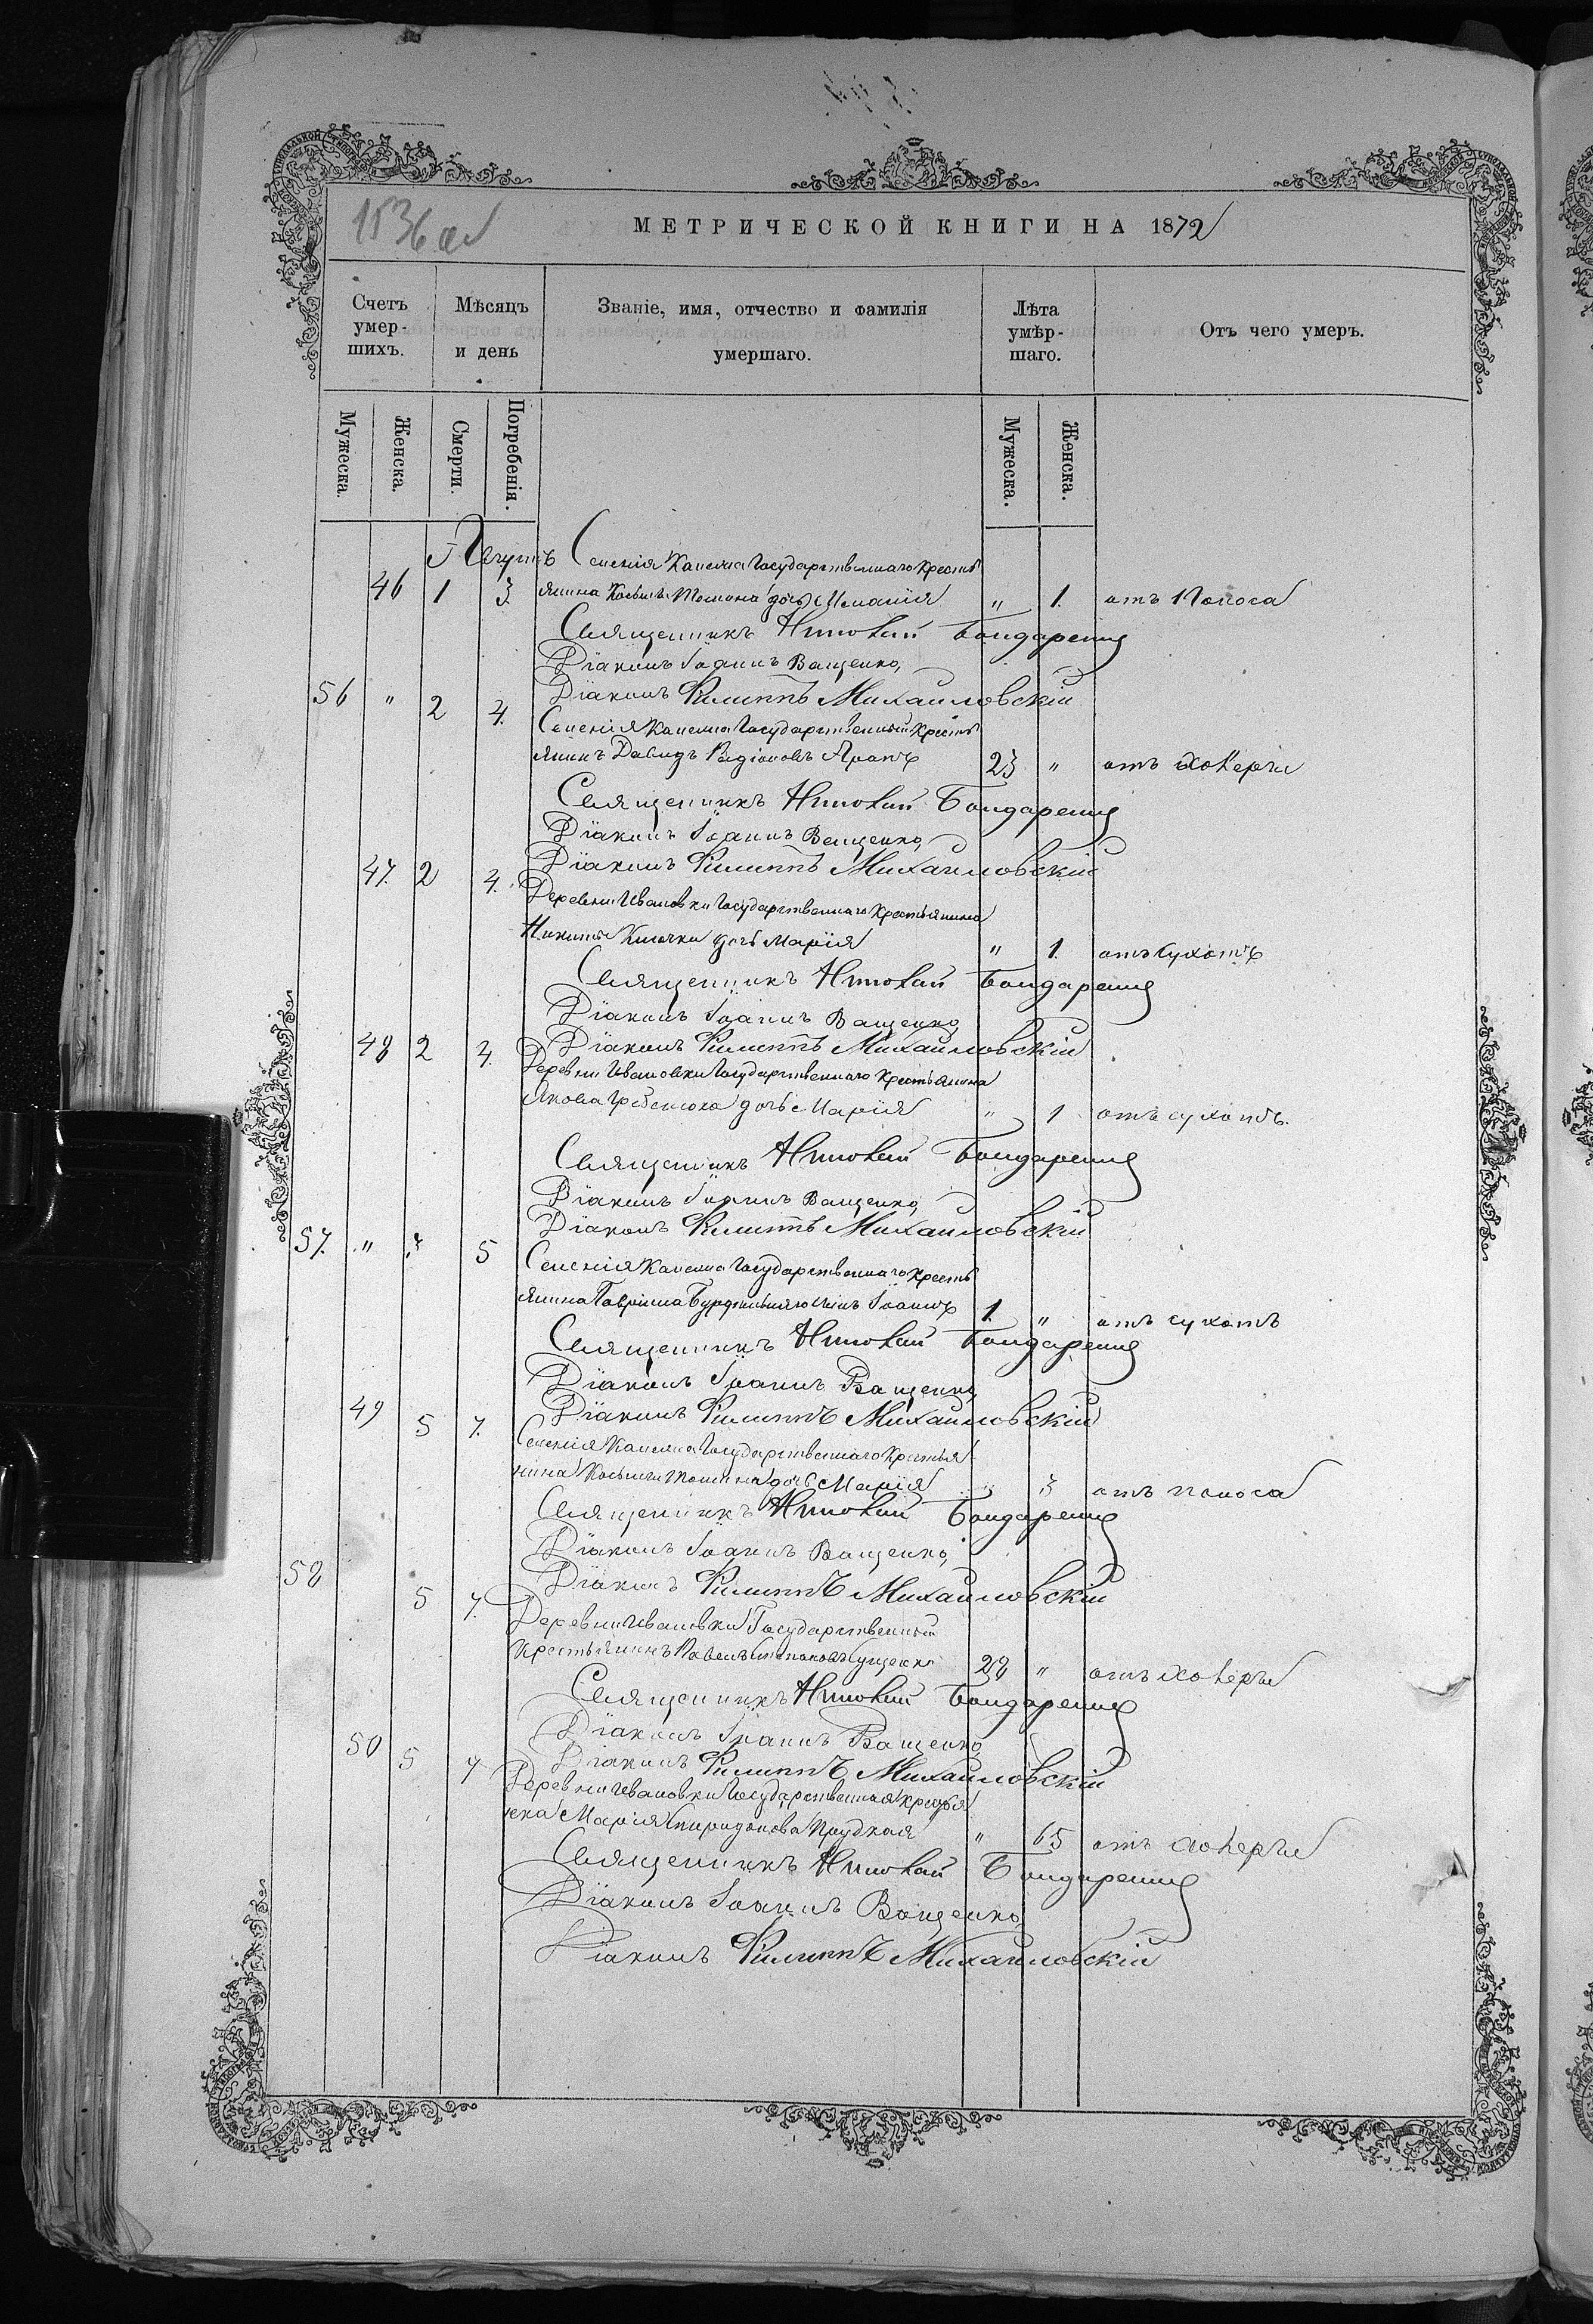 1536 об
МЕТРИЧЕСКОЙ КНИГИ НА 1872
Счетъ умер-шихъ.
Мѣсяцъ и день
Званіе, имя, отчество и фамилія умершаго.
Лѣта умѣр-шаго.
Отъ чего умеръ.
Мужеска.
Женска.
Смерти.
Погребенія.
Мужеска.
Женска.
Августъ Селенія Государственнаго Кресть
46 1 3 янина дочь " 1. отъ Поноса
Священникъ Николай Бондаренко
Діаконъ Іоаннъ Ващенко,
Діаконъ Филиппъ Михайловскій
56 " 2 4. Селенія Государственный Кресть
янинъ Давидъ Радіоновъ 23 " отъ холеры
Священникъ Николай Бондаренко
Діаконъ Іоаннъ Ващенко,
Діаконъ Филиппъ Михайловскій
47. 2 4. Деревни Ивановки Государственнаго Крестьянина
Никиты дочь Марія " 1. отъ сухотъ
Священникъ Николай Бондаренко
Діаконъ Іоаннъ Ващенко
Діаконъ Филиппъ Михайловскій
48 2 4. Деревни Ивановки Государственнаго Крестьянина
Якова Гребенюка дочь Марія " 1 отъ сухотъ.
Священникъ Николай Бондаренко
Діаконъ Іоаннъ Ващенко,
Діаконъ Филиппъ Михайловскій
57. " 3 5 Селенія Государственнаго Кресть
янина Гавріила сынъ Іоаннъ 1. " отъ сухотъ
Священникъ Николай Бондаренко
Діаконъ Іоаннъ Ващенко,
Діаконъ Филиппъ Михайловскій
49 5 7. Селенія Государственнаго Крестья
нина дочь Марія " 3 отъ поноса
Священникъ Николай Бондаренко
Діаконъ Іоаннъ Ващенко,
Діаконъ Филиппъ Михайловскій
58 5 7. Деревни Ивановки Государственный
Крестьянинъ Павелъ 28 " отъ холеры
Священникъ Николай Бондаренко
Діаконъ Іоаннъ Ващенко,
50 5 7 Діаконъ Филиппъ Михайловскій
Деревни Ивановки Государственная Крестья
нка Марія Спиридонова Прудкая " 65 отъ холеры
Священникъ Николай Бондаренко
Діаконъ Іоаннъ Ващенко,
Діаконъ Филиппъ Михайловскій